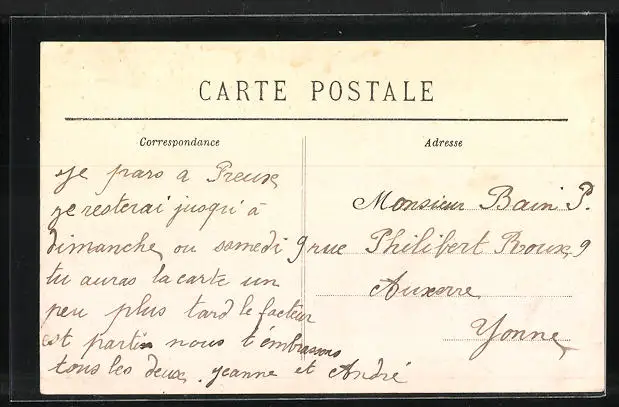 CARTE POSTALE
Correspondance
Adresse
Je pars a Preux
je resterai jusqu'à
dimanche ou samedi
tu auras la carte un
peu plus tard le facteur
est partin nous t'embrassons
tous les deux. Jeanne et André
Monsieur Bain P.
9 rue Philibert Roux 9
Auxerre
Yonne